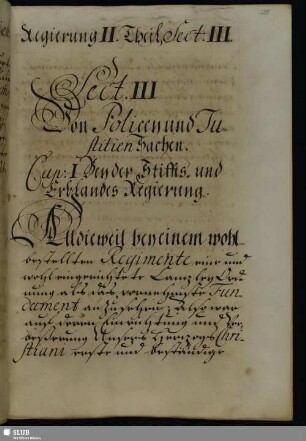 Regierung II. Theil, Sect. III.
Sect. III
Von Policey und Ju-
stitien Sachen.
Cap: I Bey der Stiffts- und
Erblandes Regierung.
Alldieweil bey einem wohl
bestellten Regimente eine und
wohl eingerichtete Cantzley Ord-
nung als das vornehmste Fun-
dament anzusehen; Also war
auch deren Einrichtung und Ver-
beßerung Unsers Herzogs Chri-
stiani erste und beständige
SLUB